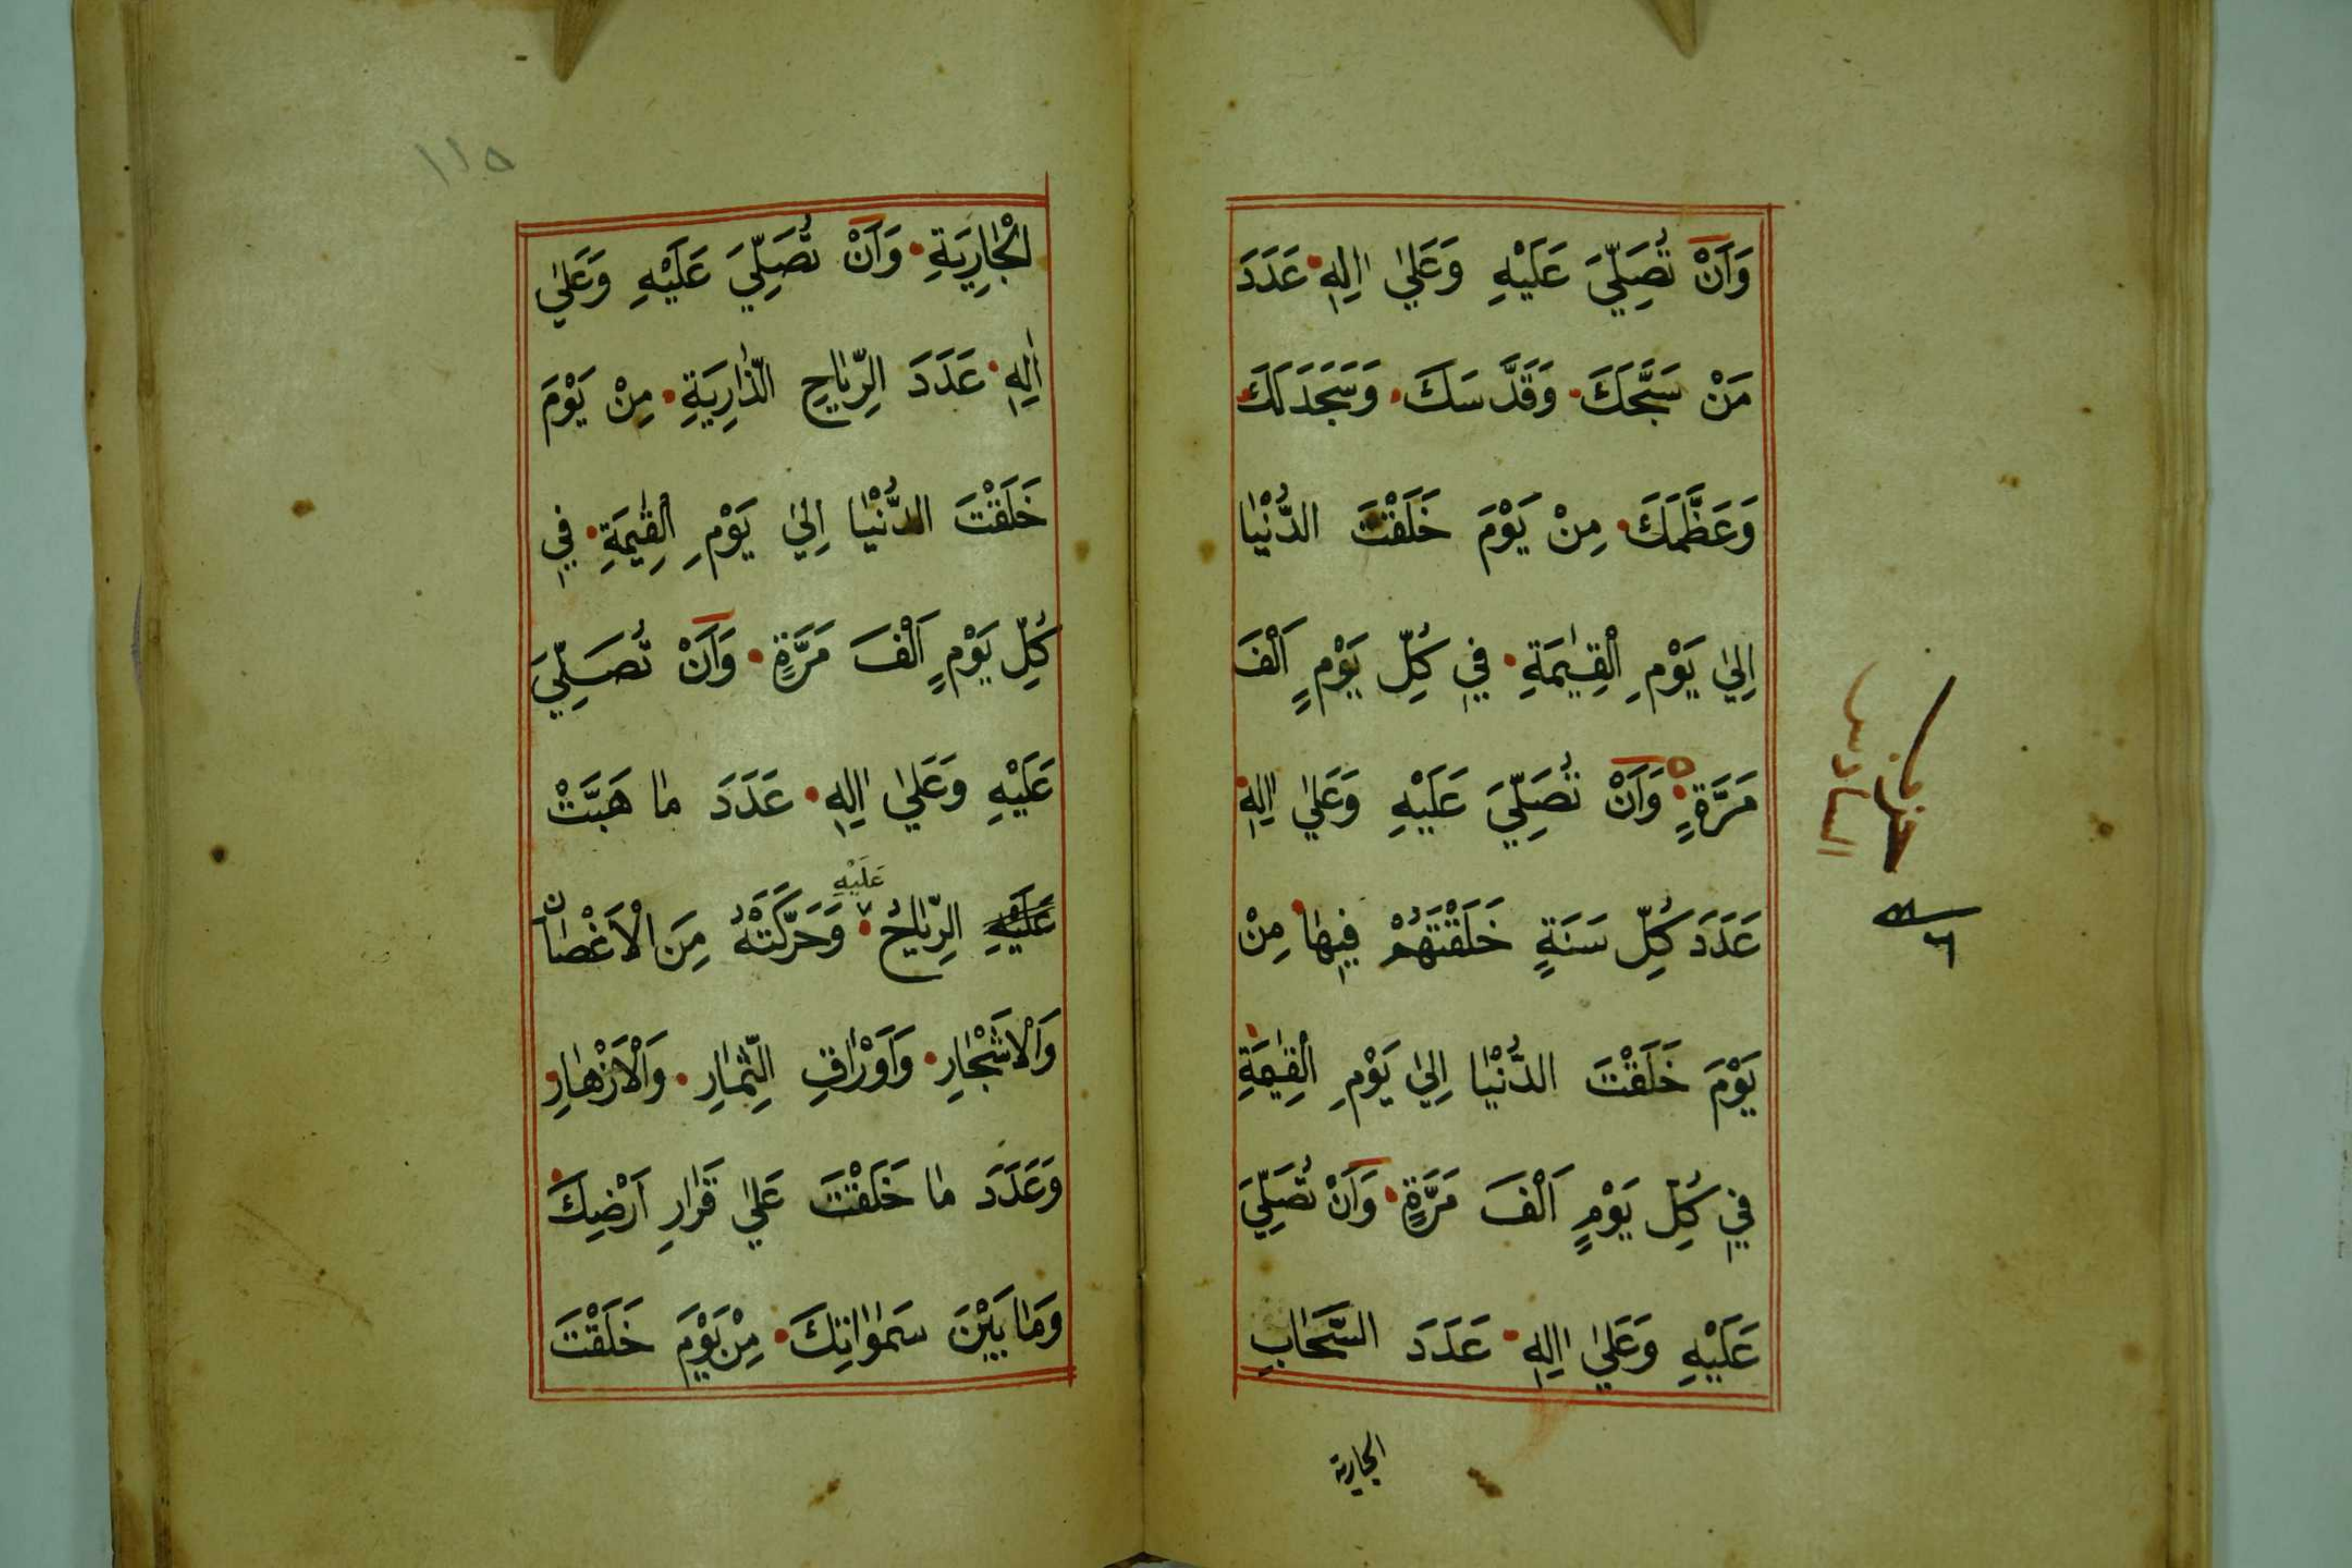 وَاَنْ تُصَلِّيَ عَلَيْهِ وَعَلٰي اٰلِهِ عَدَدَ
مَنْ سَبَّحَكَ وَقَدَّسَكَ وَسَجَدَ لَكَ
وَعَظَّمَكَ مِنْ يَوْمَ خَلَقْتَ الدُّنْيٰا
اِلٰي يَوْمِ الْقِيٰمَةِ فِي كُلِّ يَوْمٍ اَلْفَ
مَرَّةٍ وَاَنْ تُصَلِّيَ عَلَيْهِ وَعَلٰي اٰلِهِ
عَدَدَ كُلِّ سَنَةٍ خَلَقْتَهُمْ فِيهٰا مِنْ
يَوْمَ خَلَقْتَ الدُّنْيٰا اِلٰي يَوْمِ الْقِيٰمَةِ
فِي كُلِّ يَوْمٍ اَلْفَ مَرَّةٍ وَاَنْ تُصَلِّيَ
عَلَيْهِ وَعَلٰي اٰلِهِ عَدَدَ السَّحٰابِ
الجارية
حزب
السادس
١١٥
الْجٰارِيَةِ وَاَنْ تُصَلِّيَ عَلَيْهِ وَعَلٰي
اٰلِهِ عَدَدَ الرِّيٰاحِ الذّٰارِيَةِ مِنْ يَوْمَ
خَلَقْتَ الدُّنْيٰا اِلٰي يَوْمِ الْقِيٰمَةِ فِي
كُلِّ يَوْمٍ اَلْفَ مَرَّةٍ وَاَنْ تُصَلِّيَ
عَلَيْهِ وَعَلٰي اٰلِهِ عَدَدَ مٰا هَبَّتْ
عَلَيْهِ
عَلَيْهِ الرِّيٰاحُ وَحَرَّكَتْهُ مِنَ الْاَغْصٰانِ
وَالْاَشْجٰارِ وَاَوْرٰاقِ الثِّمٰارِ وَالْاَزْهٰارِ
وَعَدَدَ مٰا خَلَقْتَ عَلٰي قَرٰارِ اَرْضِكَ
وَمٰا بَيْنَ سَمٰوٰاتِكَ مِنْ يَوْمَ خَلَقْتَ